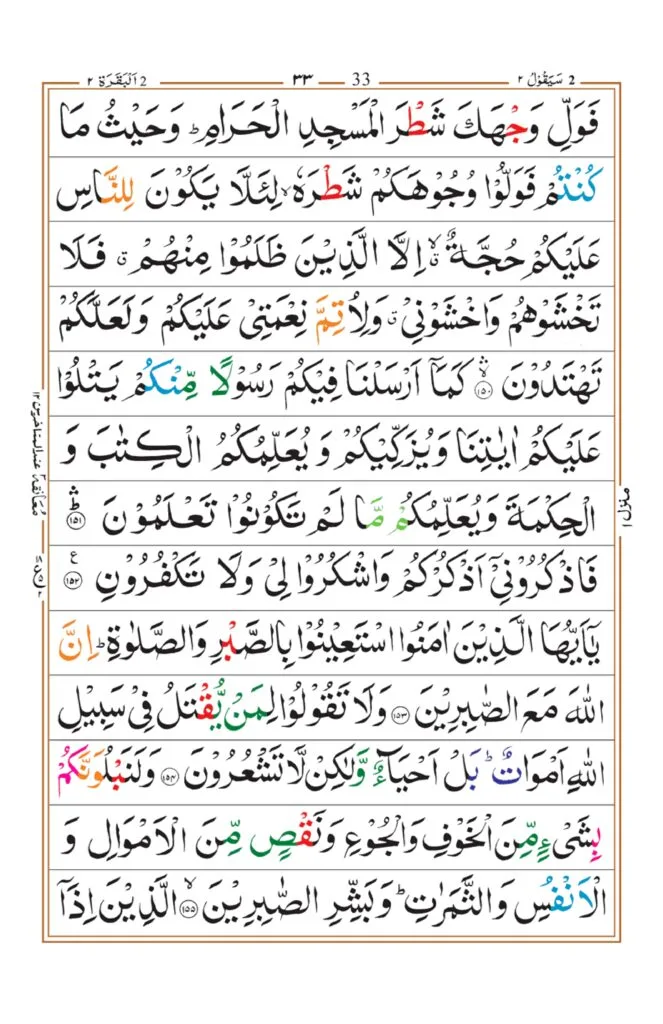 2 سَيَقُوْلُ ٢ 33 ٣٣ 2 اَلْبَقَرَة ٢
فَوَلِّ وَجْهَكَ شَطْرَ الْمَسْجِدِ الْحَرَامِ ؕ وَحَيْثُ مَا
كُنْتُمْ فَوَلُّوْا وُجُوْهَكُمْ شَطْرَهٗ ۙ لِئَلَّا يَكُوْنَ لِلنَّاسِ
عَلَيْكُمْ حُجَّةٌ ۙۗ اِلَّا الَّذِيْنَ ظَلَمُوْا مِنْهُمْ ۗ فَلَا
تَخْشَوْهُمْ وَاخْشَوْنِيْ ۗ وَلِاُتِمَّ نِعْمَتِيْ عَلَيْكُمْ وَلَعَلَّكُمْ
تَهْتَدُوْنَ ۙۛ ١٥٠ كَمَاۤ اَرْسَلْنَا فِيْكُمْ رَسُوْلًا مِّنْكُمْ يَتْلُوْا
عَلَيْكُمْ اٰيٰتِنَا وَيُزَكِّيْكُمْ وَيُعَلِّمُكُمُ الْكِتٰبَ وَ
الْحِكْمَةَ وَيُعَلِّمُكُمْ مَّا لَمْ تَكُوْنُوْا تَعْلَمُوْنَ ؕۛ ١٥١
فَاذْكُرُوْنِيْۤ اَذْكُرْكُمْ وَاشْكُرُوْا لِيْ وَلَا تَكْفُرُوْنِ ١٥٢ ع
يٰۤاَيُّهَا الَّذِيْنَ اٰمَنُوا اسْتَعِيْنُوْا بِالصَّبْرِ وَالصَّلٰوةِ ؕ اِنَّ
اللّٰهَ مَعَ الصّٰبِرِيْنَ ١٥٣ وَلَا تَقُوْلُوْا لِمَنْ يُّقْتَلُ فِيْ سَبِيْلِ
اللّٰهِ اَمْوَاتٌ ؕ بَلْ اَحْيَآءٌ وَّلٰكِنْ لَّا تَشْعُرُوْنَ ١٥٤ وَلَنَبْلُوَنَّكُمْ
بِشَيْءٍ مِّنَ الْخَوْفِ وَالْجُوْعِ وَنَقْصٍ مِّنَ الْاَمْوَالِ وَ
الْاَنْفُسِ وَالثَّمَرٰتِ ؕ وَبَشِّرِ الصّٰبِرِيْنَ ۙ ١٥٥ الَّذِيْنَ اِذَاۤ
منزل ١
معانقة ٢ عند المتأخرين ١٢